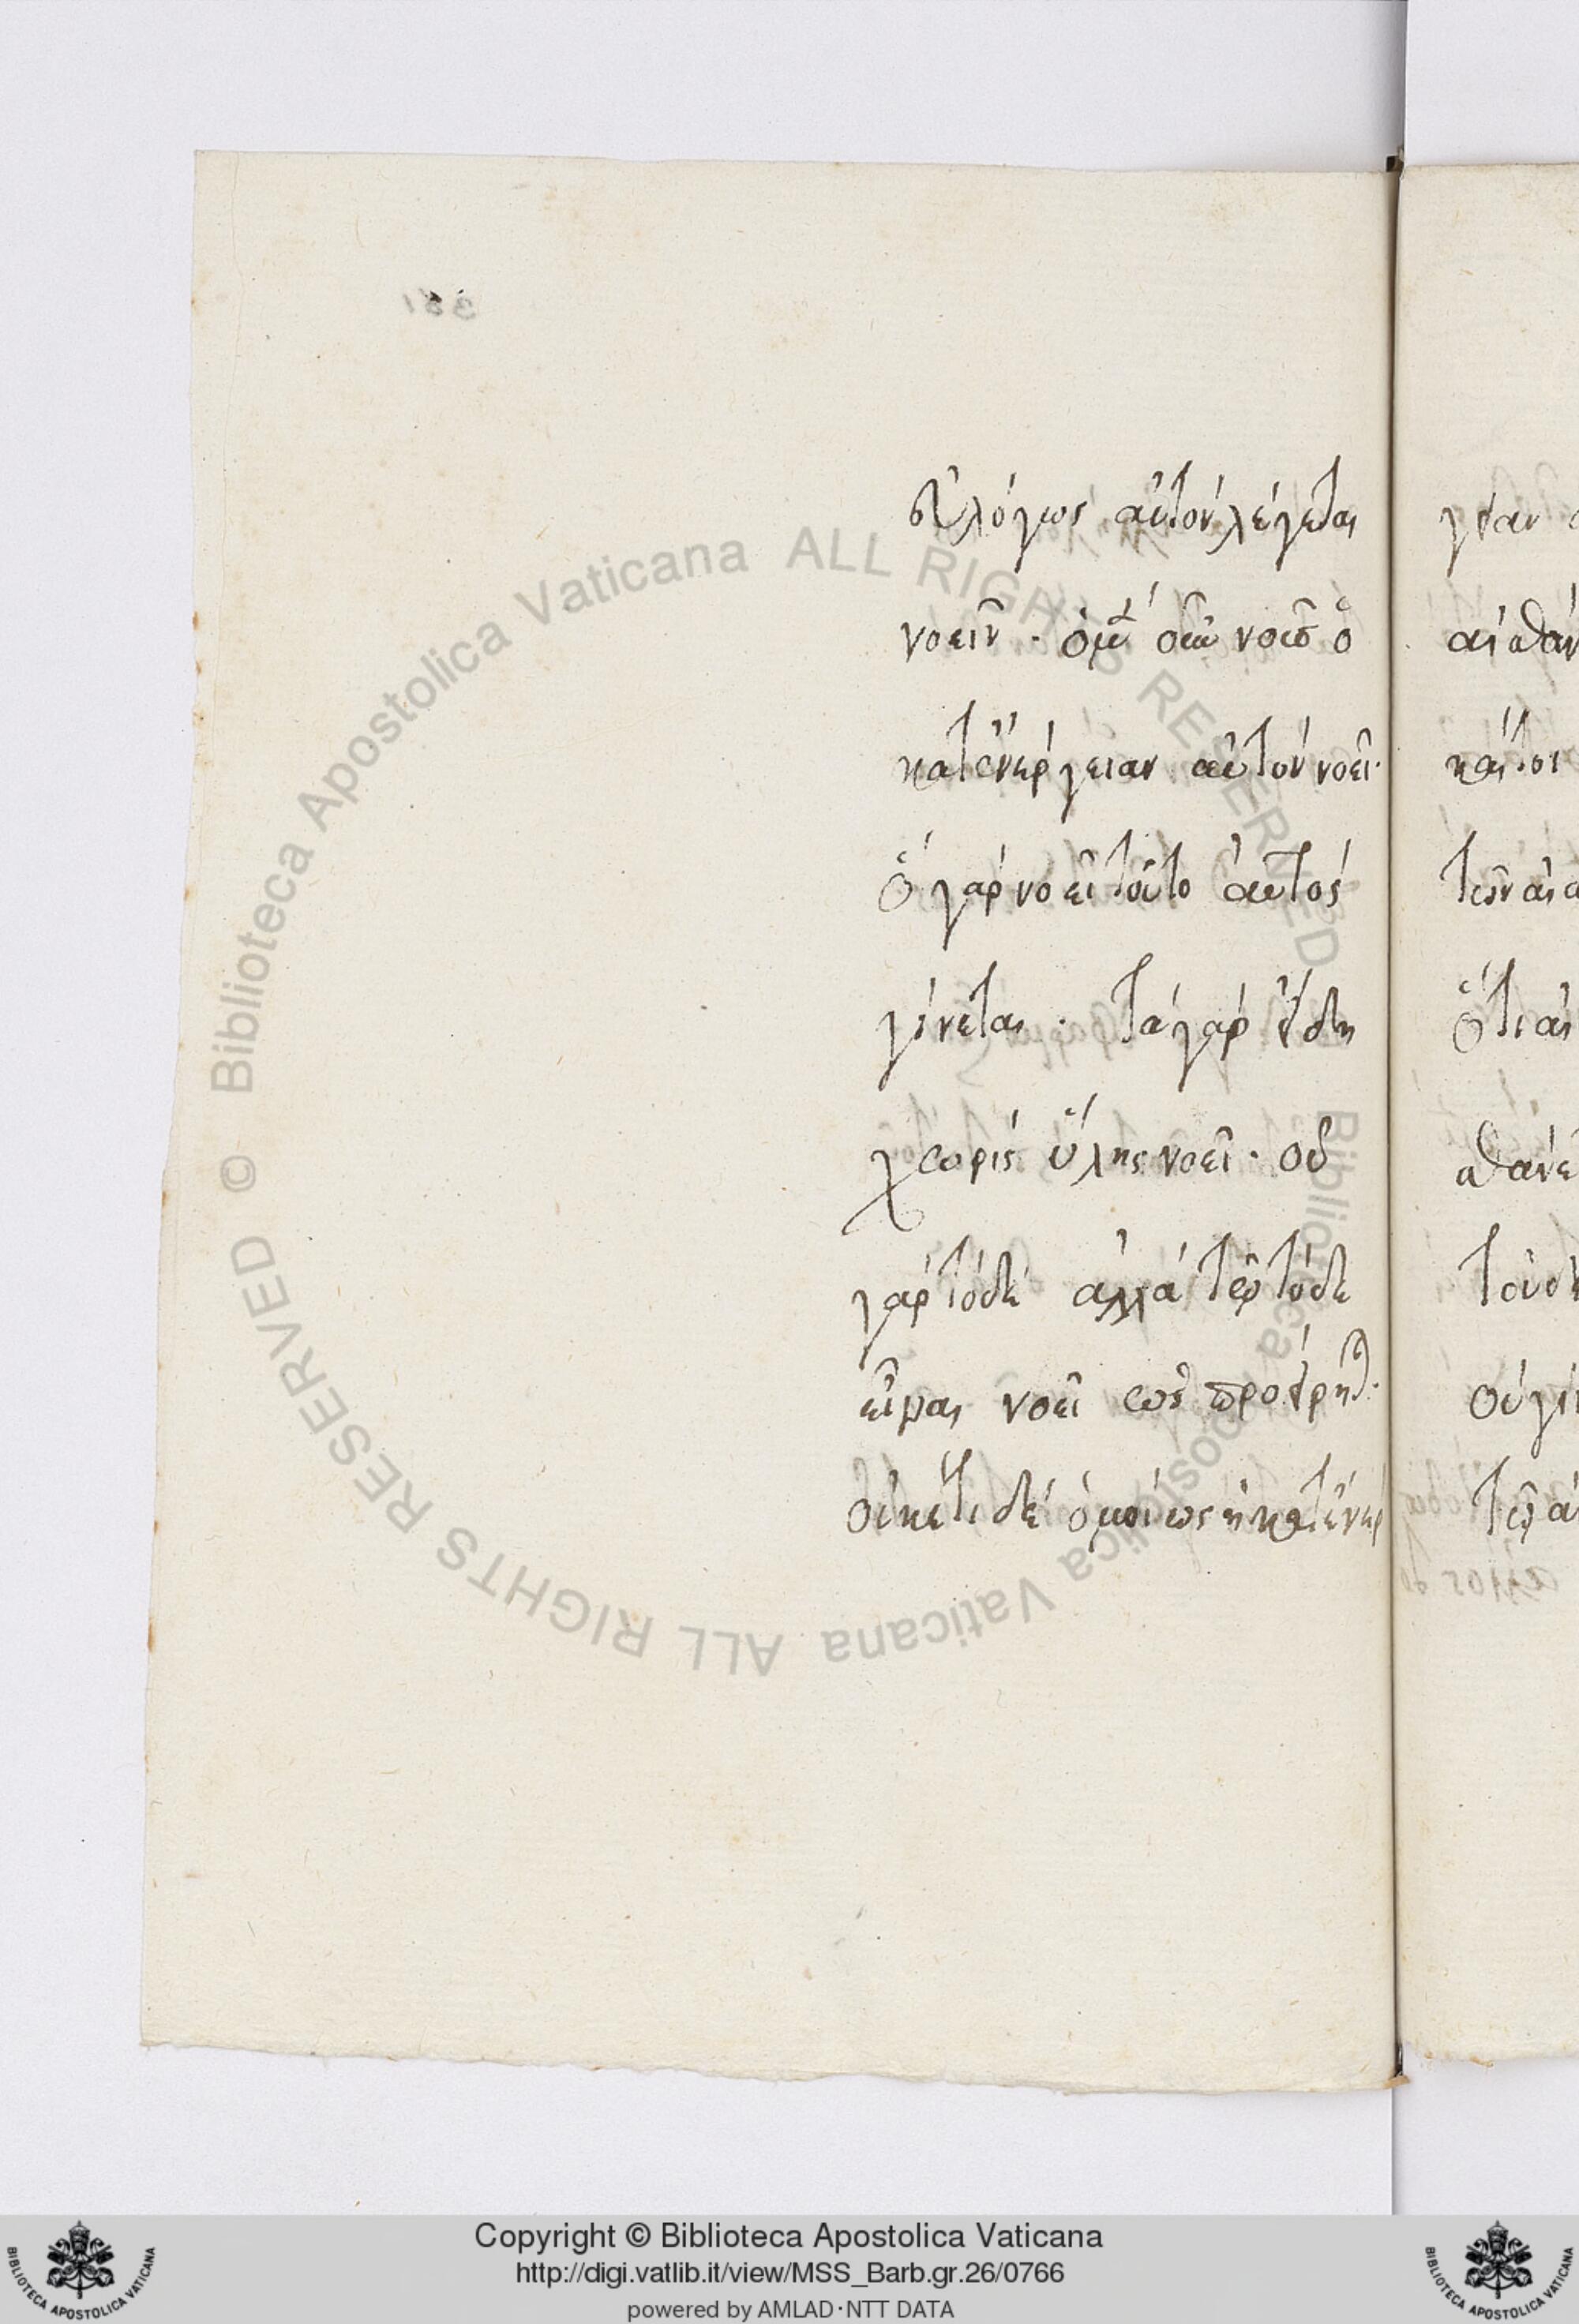 εὐλόγως αὐτὸν λέγεται
νοεῖν · ὁ μὲν οὖν νοῦς ὁ
κατ' ἐνέργειαν αὐτὸν νοεῖ·
ὃ γὰρ νοεῖ τοῦτο αὐτὸς
γίνεται · τὰ γὰρ εἴδη
χωρὶς ὕλης νοεῖ · οὐ
γὰρ τόδε ἀλλὰ τῷ τόδε
εἶναι νοεῖ ὡς προείρηται ·
οὐκέτι δὲ ὁμοίως ἡ κατ' ἐνέρ
γειαν
αἰσθάν
καίτοι
τῶν αἰσ
ὅτι αἰσ
σθάνε
τοῦ δὲ
οὐ γίν
τῷ
Biblioteca Apostolica Vaticana ALL RIGHTS RESERVED
Biblioteca Apostolica Vaticana ALL RIGHTS RESERVED ©
Copyright © Biblioteca Apostolica Vaticana
http://digi.vatlib.it/view/MSS_Barb.gr.26/0766
powered by AMLAD·NTT DATA
BIBLIOTECA APOSTOLICA VATICANA
BIBLIOTECA APOSTOLICA VATICANA